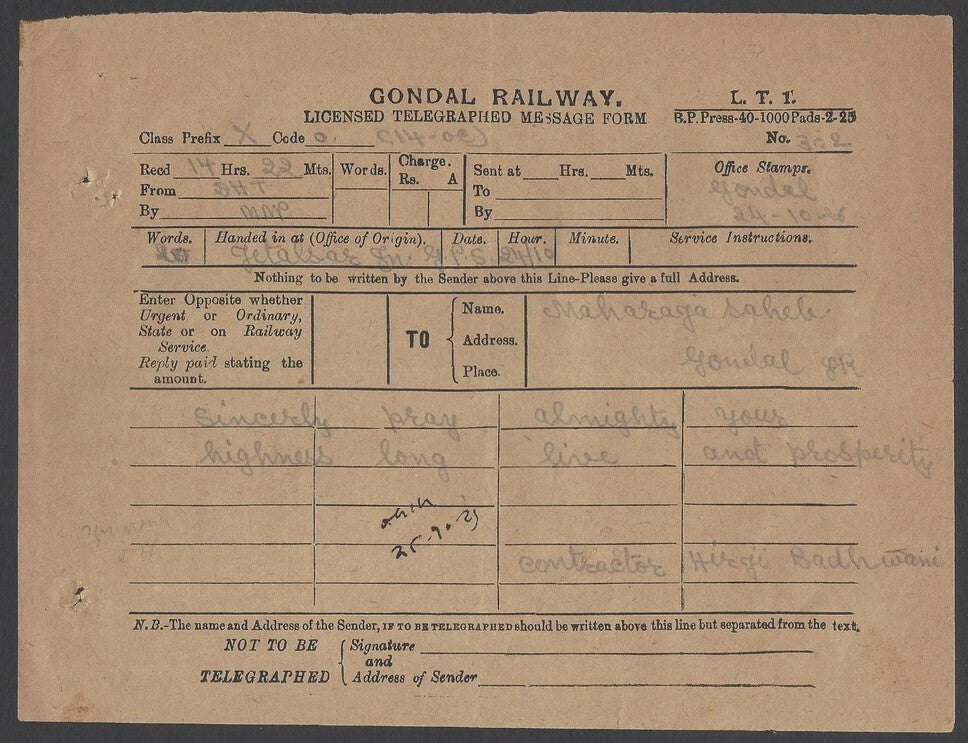 GONDAL RAILWAY.
LICENSED TELEGRAPHED MESSAGE FORM
L. T. 1.
B.P. Press-40-1000 Pads-2-25
Class Prefix X Code O.
No. 302
Recd 14 Hrs. 22 Mts.
From
By
Words.
Charge.
Rs. A
Sent at Hrs. Mts.
To
By
Office Stamps.
Gondal
24-10-26
Words. Handed in at (Office of Origin). Date. Hour. Minute. Service Instructions.
20 Jetalsar Jn. 24/10
Nothing to be written by the Sender above this Line-Please give a full Address.
Enter Opposite whether
Urgent or Ordinary,
State or on Railway
Service.
Reply paid stating the
amount.
TO
Name.
Address.
Place.
Maharaja Saheb
Gondal
sincerly pray almighty your
highness long live and prosperity
contractor Hirji Badhwani
N.B.-The name and Address of the Sender, IF TO BE TELEGRAPHED should be written above this line but separated from the text.
NOT TO BE
TELEGRAPHED
Signature
and
Address of Sender